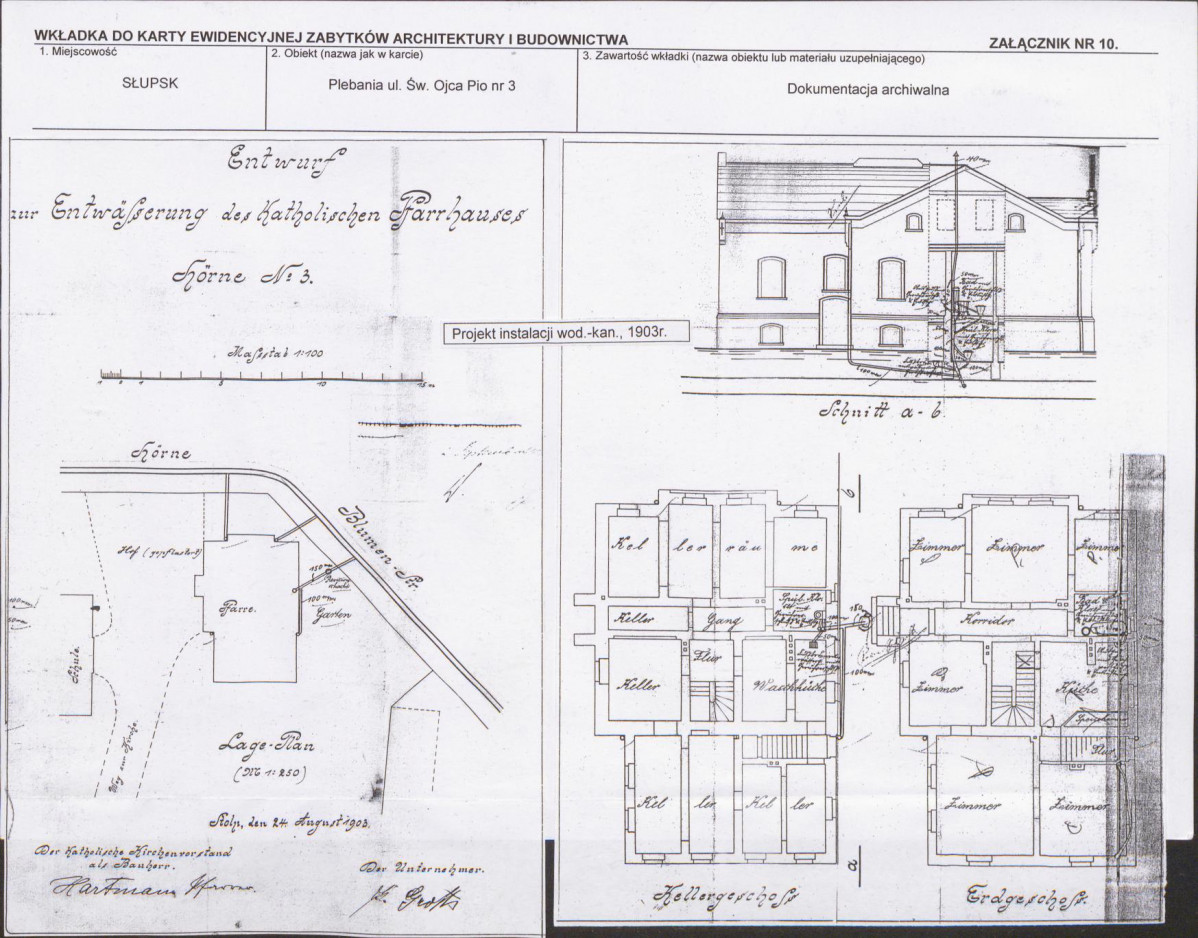 WKŁADKA DO KARTY EWIDENCYJNEJ ZABYTKÓW ARCHITEKTURY I BUDOWNICTWA
ZAŁĄCZNIK NR 10.
1. Miejscowość
SŁUPSK
2. Obiekt (nazwa jak w karcie)
Plebania ul. Św. Ojca Pio nr 3
3. Zawartość wkładki (nazwa obiektu lub materiału uzupełniającego)
Dokumentacja archiwalna
Entwurf
zur Entwäſserung des Katholischen Pfarrhauses
Hörne No 3.
Projekt instalacji wod.-kan., 1903r.
Maſsstab 1:100
1 0 10 15 m
Hörne
Blumen-Str.
Hof (gepflastert)
Pfarre.
150 mm
100 mm
Garten
Schule.
Weg zur Kirche.
Lage-Plan
(M 1:250)
Stolp, den 24. August 1903.
Der Katholische Kirchenvorstand
als Bauherr.
Hartmann Pfarrer.
Der Unternehmer.
Schnitt a-b.
b
Kel ler räu me
Keller
Gang
Flur
Keller
Waschküche
Kel ler
Kel ler
a
Kellergeschoſs
150
100 mm
Zimmer
Zimmer
Zimmer
Korridor
Zimmer
Küche
Speisekammer
Flur
Zimmer
Zimmer
Erdgeschoſs.